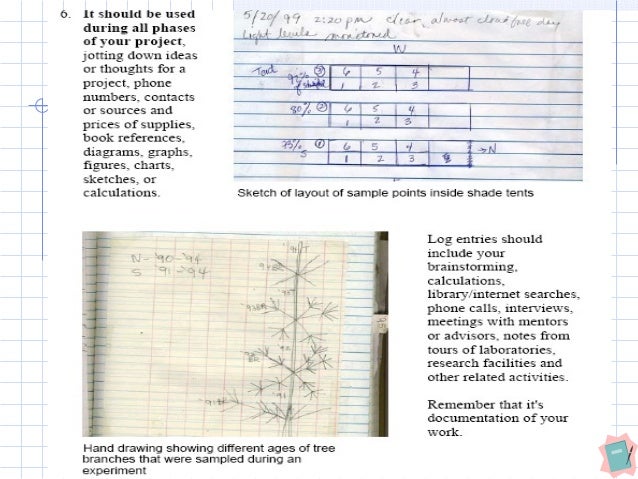 6. It should be used
during all phases
of your project,
jotting down ideas
or thoughts for a
project, phone
numbers, contacts
or sources and
prices of supplies,
book references,
diagrams, graphs,
figures, charts,
sketches, or
calculations.
5/20/99 2:20 pm clear, almost cloud free day
Light levels monitored
W
92% ③ 6 5 4
of shade 1 2 3
80% ② 6 5 4
1 2 3
73% ① 6 5 4 → N
S 1 2 3
Sketch of layout of sample points inside shade tents
N - '90 - '94
S '91 - '94
Hand drawing showing different ages of tree
branches that were sampled during an
experiment
Log entries should
include your
brainstorming,
calculations,
library/internet searches,
phone calls, interviews,
meetings with mentors
or advisors, notes from
tours of laboratories,
research facilities and
other related activities.
Remember that it's
documentation of your
work.